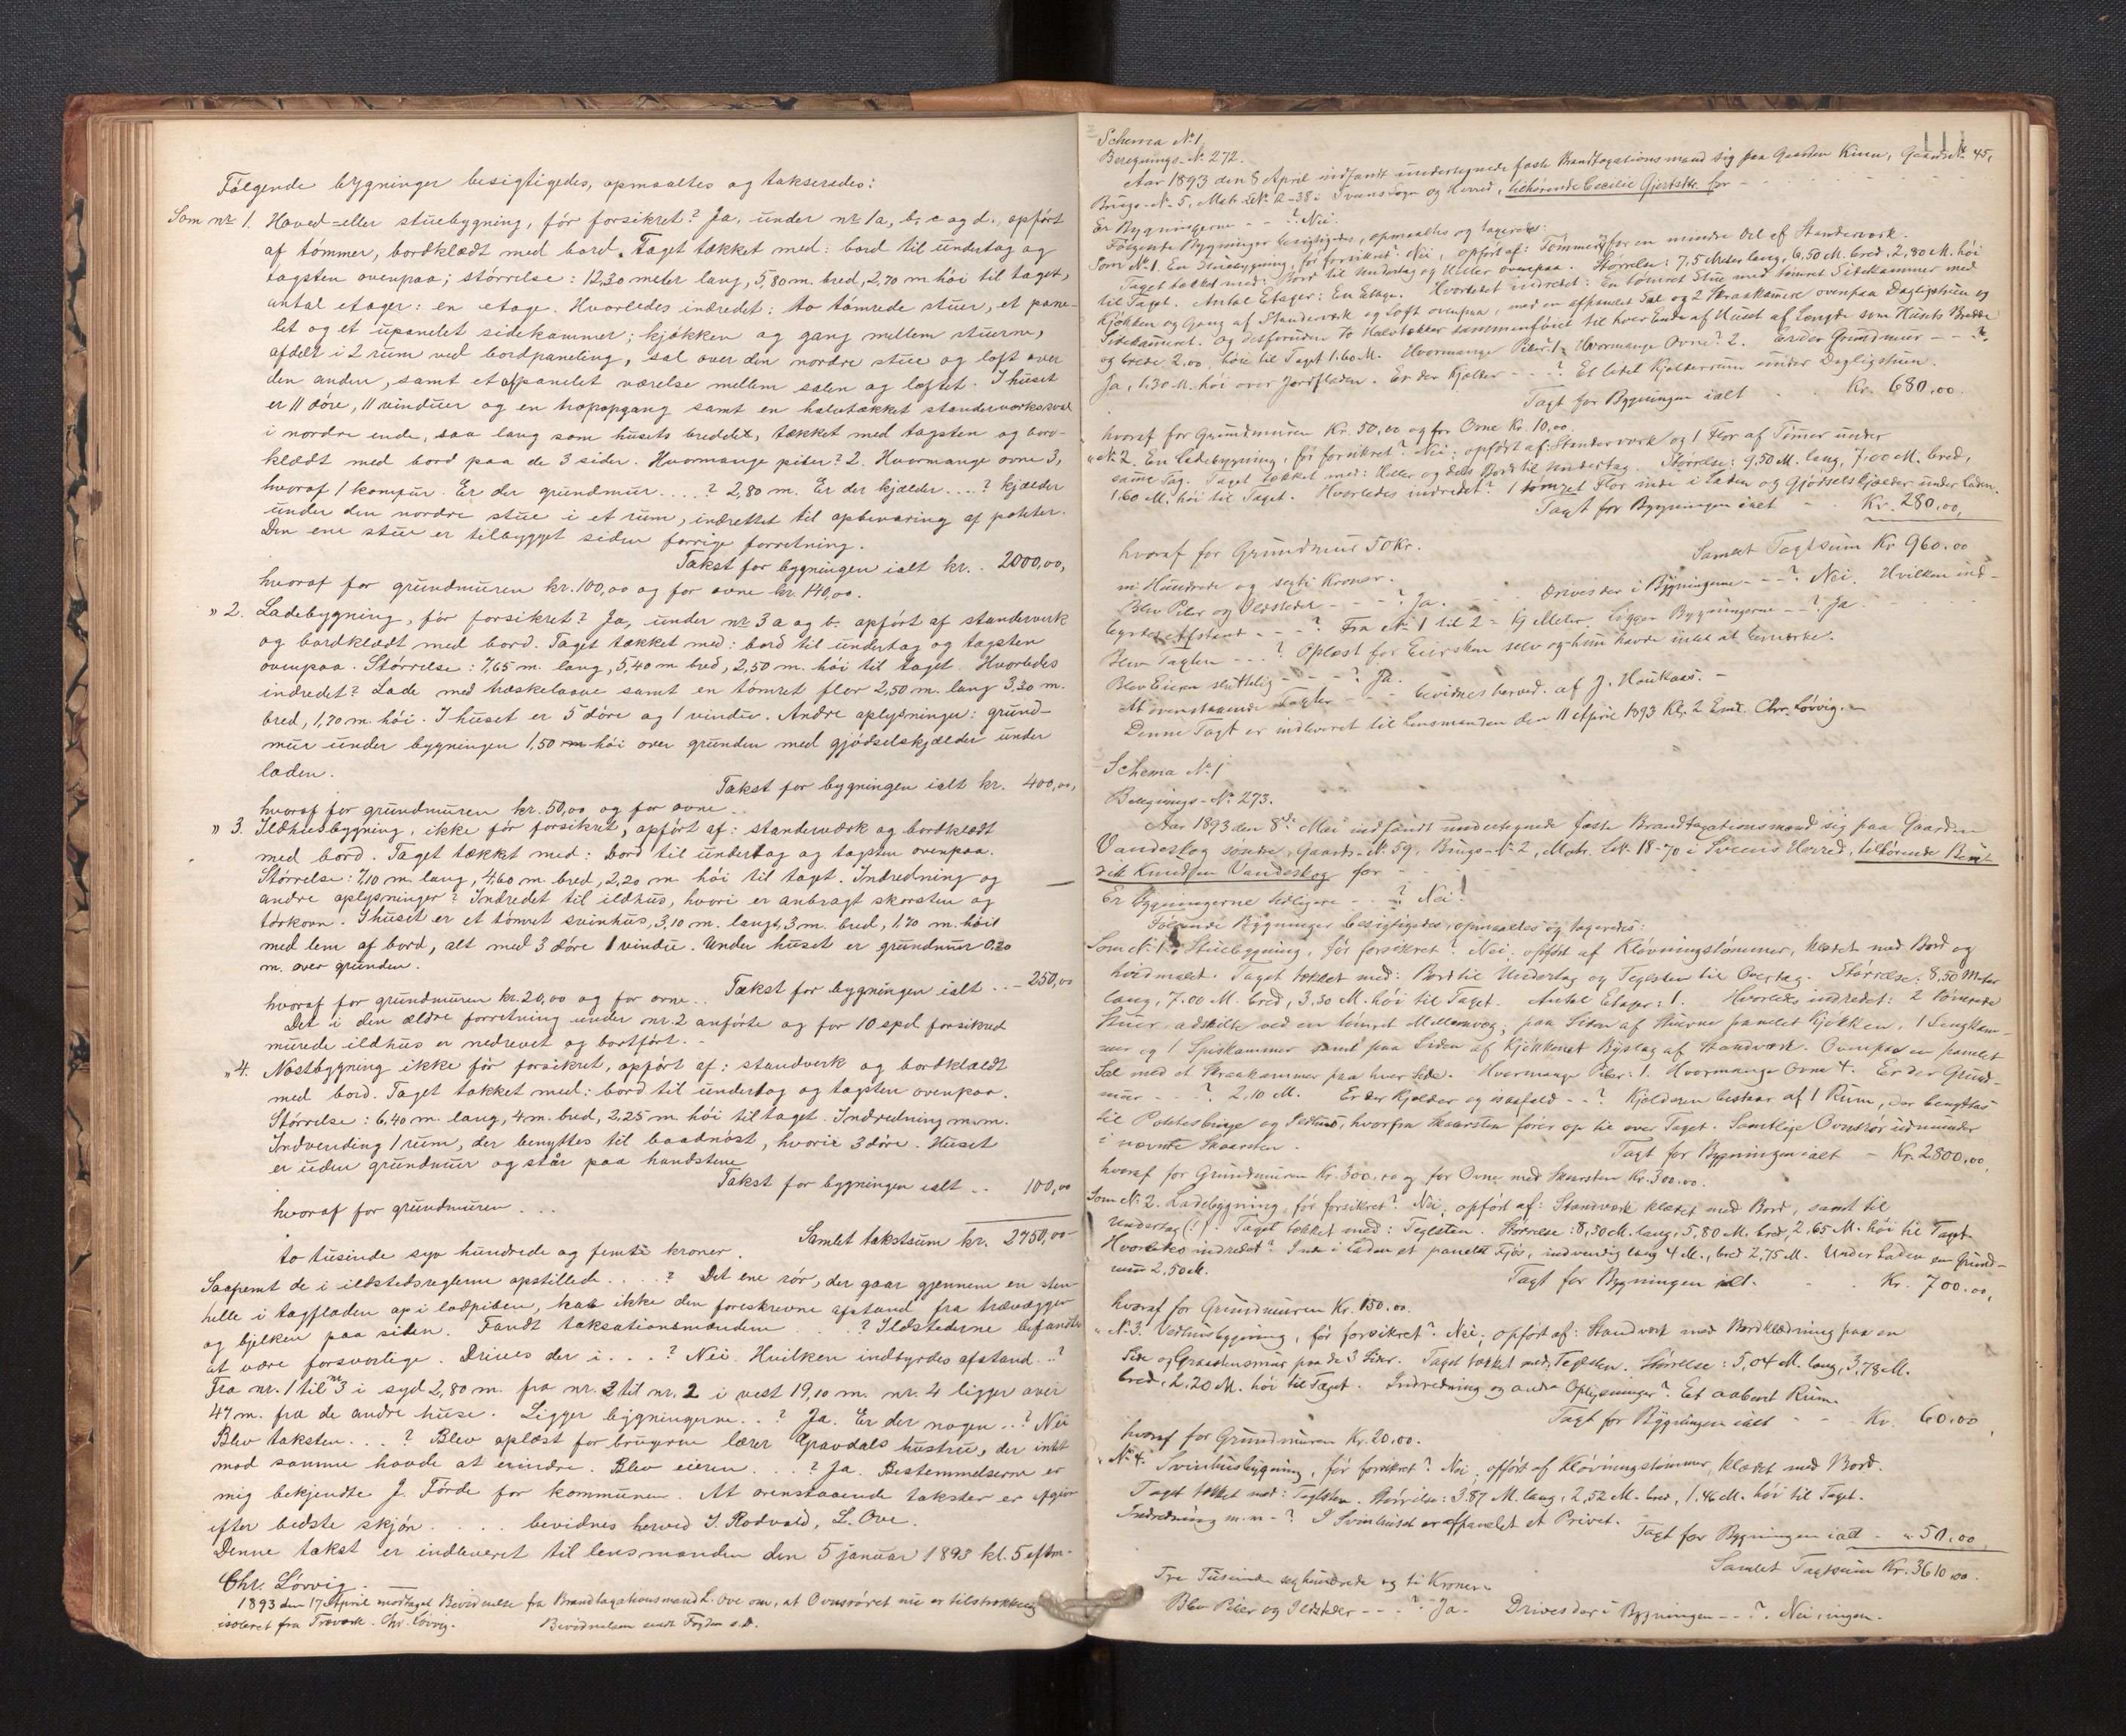 Følgende bygninger besigtigedes, opmaaltes og takseredes:
Som nr 1. Hoved- eller stuebygning, før forsikret? Ja, under nr 1a, b, c og d, opført
af tømmer, bordklædt med bord. Taget tækket med: bord til undertag og
tagsten ovenpaa; størrelse: 12,30 meter lang, 5,80 m. bred, 2,70 m høi til taget,
antal etager: en etage. Hvorledes indredet: to tømrede stuer, et pane-
let og et upanelet sidekammer; kjøkken og gang mellem stuerne,
afdelt i 2 rum ved bordpaneling, sal over den nordre stue og loft over
den anden, samt et afpanelet værelse mellem salen og loftet. I huset
er 11 døre, 11 vinduer og en trapopgang samt en halvtækket standerværksval
i nordre ende, saa lang som husets bredde, tækket med tagsten og bord-
klædt med bord paa de 3 sider. Hvormange piber? 2. Hvormange ovne 3,
hvoraf 1 komfur. Er der grundmur....? 2,80 m. Er der kjælder....? kjælder
under den nordre stue i et rum, indrettet til opbevaring af poteter.
Den ene stue er tilbygget siden forrige forretning.
Takst for bygningen ialt kr. . 2000,00,
hvoraf for grundmuren kr. 100,00 og for ovne kr. 140,00.
" 2. Ladebygning, før forsikret? Ja, under nr 3 a og b. opført af standerverk
og bordklædt med bord. Taget tækket med: bord til undertag og tagsten
ovenpaa. Størrelse: 7,65 m. lang, 5,40 m bred, 2,50 m. høi til taget. Hvorledes
indredet? Lade med træskelaave samt en tømret flor 2,50 m. lang 3,30 m.
bred, 1,70 m. høi. I huset er 5 døre og 1 vindu. Andre oplysninger: grund-
mur under bygningen 1,50 m høi over grunden med gjødselskjælder under
laden.
Takst for bygningen ialt kr. 400,00,
hvoraf for grundmuren kr. 50,00 og for ovne ..
" 3. Ildhusbygning, ikke før forsikret, opført af: standerværk og bordklædt
med bord. Taget tækket med: bord til undertag og tagsten ovenpaa.
Størrelse: 7,10 m. lang, 4,60 m. bred, 2,20 m høi til taget. Indredning og
andre oplysninger? Indredet til ildhus, hvori er anbragt skorsten og
tørkovn. I huset er et tømret svinhus, 3,10 m. langt, 3 m. bred, 1,70 m. høit
med lem af bord, alt med 3 døre 1 vindu. Under huset er grundmur 0,20
m. over grunden.
Takst for bygningen ialt .. - 250,00
hvoraf for grundmuren kr. 20,00 og for ovne..
Det i den ældre forretning under nr. 2 anførte og for 10 spd. forsikred
murede ildhus er nedrevet og bortført. -
" 4. Nøstbygning ikke før forsikret, opført af: standverk og bordklædt
med bord. Taget tækket med: bord til undertag og tagsten ovenpaa.
Størrelse: 6,40 m. lang, 4 m. bred, 2,25 m. høi til taget. Indredning m.m.
Indvending 1 rum, der benyttes til baadnøst, hvori 3 døre. Huset
er uden grundmur og står paa handstene
Takst for bygningen ialt .. 100,00
hvoraf for grundmuren ...
Samlet takstsum kr. 2750,00
to tusinde syv hundrede og femti kroner.
Saafremt de i ildstedsreglerne opstillede ....? Det ene rør, der gaar gjennem en sten-
helle i tagfladen op i lodpiben, har ikke den foreskrevne afstand fra trævægger
og bjelken paa siden. Fandt taksationsmændene ..? Ildstederne befandtes
at være forsvarlige. Drives der i...? Nei. Hvilken indbyrdes afstand..?
Fra nr. 1 til nr 3 i syd 2,80 m. fra nr. 3 til nr. 2 i vest 19,10 m. nr. 4 ligger over
47 m. fra de andre huse. Ligger bygningerne..? Ja. Er der nogen..? Nei
Blev taksten...? Blev oplæst for brugeren lærer Gravdals hustru, der intet
mod samme havde at erindre. Blev eieren...? Ja. Bestemmelserne er
mig bekjendte J. Førde for kommunen. At ovenstaaende takster er afgivn
efter bedste skjøn .... bevidnes herved I. Rodvald, L. Ove.
Denne takst er indleveret til lensmanden den 5 januar 1893 kl. 5 eftm.
Chr. Løvvig.
1893 den 17 April modtaget Bevidnelse fra Brandtaxationsmand L. Ove om, at Ovnsrøret nu er tilstrækkelig
isoleret fra Træværk. Chr. Løvvig. Bevidnelsen sendt Fogden s.D.
111
Schema No 1
Beregnings-No 272.
Aar 1893 den 8 April indfandt undertegnede faste Brandtaxationsmand sig paa Gaarden Kinn, Gaards No 45,
Brugs-No 5, Matr. LNo a-38 i Svans Sogn og Herred, tilhørende Cecilie Gjertsdtr. for -
Er Bygningerne - - ? Nei.
Følgende Bygninger besigtigedes, opmaaltes og taxeredes:
Som No 1. En Stuebygning, før forsikret? Nei, opført af: Tømmer for en mindre Del af Standerværk.
Taget tækket med: Bord til Undertag og Heller ovenpaa. Størrelse: 7,5 Meter lang, 6,50 M. bred, 2,80 M. høi
til Taget. Antal Etager: En Etage. Hvorledes indredet: En tømret Stue med tømret Sidekammer med
Kjøkken og Gang af Standerværk og Loft ovenpaa, med en afpanelet Sal og 2 Skraakamre ovenpaa Dagligstuen og
Sidekammeret. Og desforuden to Halvtækker sammenføiet til hver Ende af Huset af Længde som Husets Bredde
og brede 2.00, høie til Taget 1.60 M. Hvormange Piber? 1. Hvormange Ovne? 2. Er der Grundmur - - ?
Ja, 1.30 M. høi over Jordfladen. Er der Kjælder - - - ? Et lidet Kjælderrum under Dagligstuen.
Taxt for Bygningen ialt Kr. 680,00
hvoraf for Grundmuren Kr. 50,00 og for Ovne Kr. 10,00.
" No 2. En Ladebygning, før forsikret? Nei, opført af: Standerværk og 1 Flor af Tømer under
samme Tag. Taget tækket med: Heller og dels Bord til Undertag. Størrelse: 9,50 M. lang, 7,00 M. bred,
1.60 M. høi til Taget. Hvorledes indredet? 1 tømret Flor inde i Laden og Gjødselskjælder under Laden.
Taxt for Bygningen ialt - Kr. 280.00,
hvoraf for Grundmur 50 Kr.
Samlet Taxtsum Kr 960.00
ni Hundrede og sexti Kroner.
Blev Piber og Ildsteder - - - ? Ja. Drives der i Bygningerne - - - ? Nei. Hvilken ind-
byrdes Afstand - - - ? Fra No 1 til 2 = 19 Meter. Ligger Bygningerne - - ? Ja.
Blev Taxten - - - ? Oplæst for Eiersken selv og hun havde intet at bemærke.
Blev Eieren sluttelig - - - ? Ja.
At ovenstaaende Taxter - - - bevidnes herved. af J. Haukaas. -
Denne Taxt er indleveret til Lensmanden den 11 April 1893 Kl. 2 Emd. Chr. Løvvig. -
Schema No 1
Beregnings-No 273.
Aar 1893 den 8de Mai indfandt undertegnede faste Brandtaxationsmænd sig paa Gaarden
Vandeskog søndre, Gaards-No 59, Brugs-No 2, Matr. LNo 18-70 i Sveens Herred, tilhørende Bent
dik Knudsen Vandeskog for
Er Bygningerne tidligere - - ? Nei!
Følgende Bygninger besigtigedes, opmaaltes og taxeredes:
Som No 1. Stuebygning, før forsikret? Nei, opført af Kløvningstømmer, klædt med Bord og
hvidmalet. Taget tækket med: Bord til Undertag og Teglsten til Overtag. Størrelse: 8,50 Meter
lang, 7.00 M. bred, 3,30 M. høi til Taget. Antal Etager: 1. Hvorledes indredet: 2 tømrede
Stuer, adskilte ved en tømret Mellemvæg, paa Siden af Stuerne panelet Kjøkken, 1 Sengkam-
mer og 1 Spiskammer samt paa Siden af Kjøkkenet Bislag af Standværk. Ovenpaa en panelet
Sal med et Skraakammer paa hver Side. Hvormange Piber: 1. Hvormange Ovne 4. Er der Grund-
mur - - - ? 2.10 M. Er der Kjælder og isaafald - - ? Kjælderen bestaar af 1 Rum, der benyttes
til Potetesbinge og Ildhus, hvorfra Skorsten fører op til over Taget. Samtlige Ovnsrør udmunder
i nævnte Skorsten.
Taxt for Bygningen ialt - Kr. 2800,00,
hvoraf for Grundmuren Kr. 300.00 og for Ovne med Skorsten Kr. 300.00.
Som No 2. Ladebygning, før forsikret? Nei, opført af: Standværk klædt med Bord, samt til
Undertag (!). Taget tækket med: Teglsten. Størrelse: 8,50 M. lang, 5,80 M. bred, 2,65 M. høi til Taget.
Hvorledes indredet? Inde i Laden et panelet Fjøs, indvendig lang 4 M., bred 2,75 M. Under Laden en Grund-
mur 2,50 M.
Taxt for Bygningen ialt. Kr. 700.00,
hvoraf for Grundmuren Kr. 150.00.
" No 3. Vedhusbygning, før forsikret? Nei, opført af: Standværk med Bordklædning paa en
Side og Graastensmur paa de 3 Sider. Taget tækket med: Teglsten. Størrelse: 5,04 M. lang, 3,78 M.
bred, 2,20 M. høi til Taget. Indredning og andre Oplysninger? Et aabent Rum.
Taxt for Bygningen ialt - - Kr. 60.00
hvoraf for Grundmuren Kr. 20.00.
" No 4. Svinhusbygning, før forsikret? Nei, opført af Kløvningstømmer, klædet med Bord.
Taget tækket med: Teglsten. Størrelse: 3.87 M. lang, 2,52 M. bred, 1.46 M. høi til Taget.
Indredning m.m - ? I Svinhuset er afpanelet et Privet.
Taxt for Bygningen ialt - " 50,00
Samlet Taxtsum Kr. 3610,00.
Tre Tusinde sexhundrede og ti Kroner.
Blev Piber og Ildsteder - - - ? Ja. Drives der i Bygningen - - ? Nei, ingen.